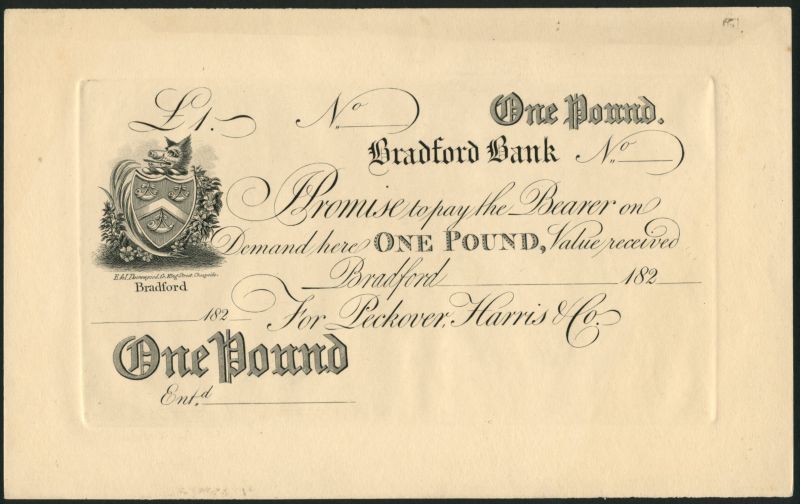 £1. No. One Pound.
Bradford Bank No.
I Promise to pay the Bearer on
Demand here ONE POUND, Value received
Bradford 182
Bradford
182 For Peckover, Harris & Co.
One Pound
Ent.d